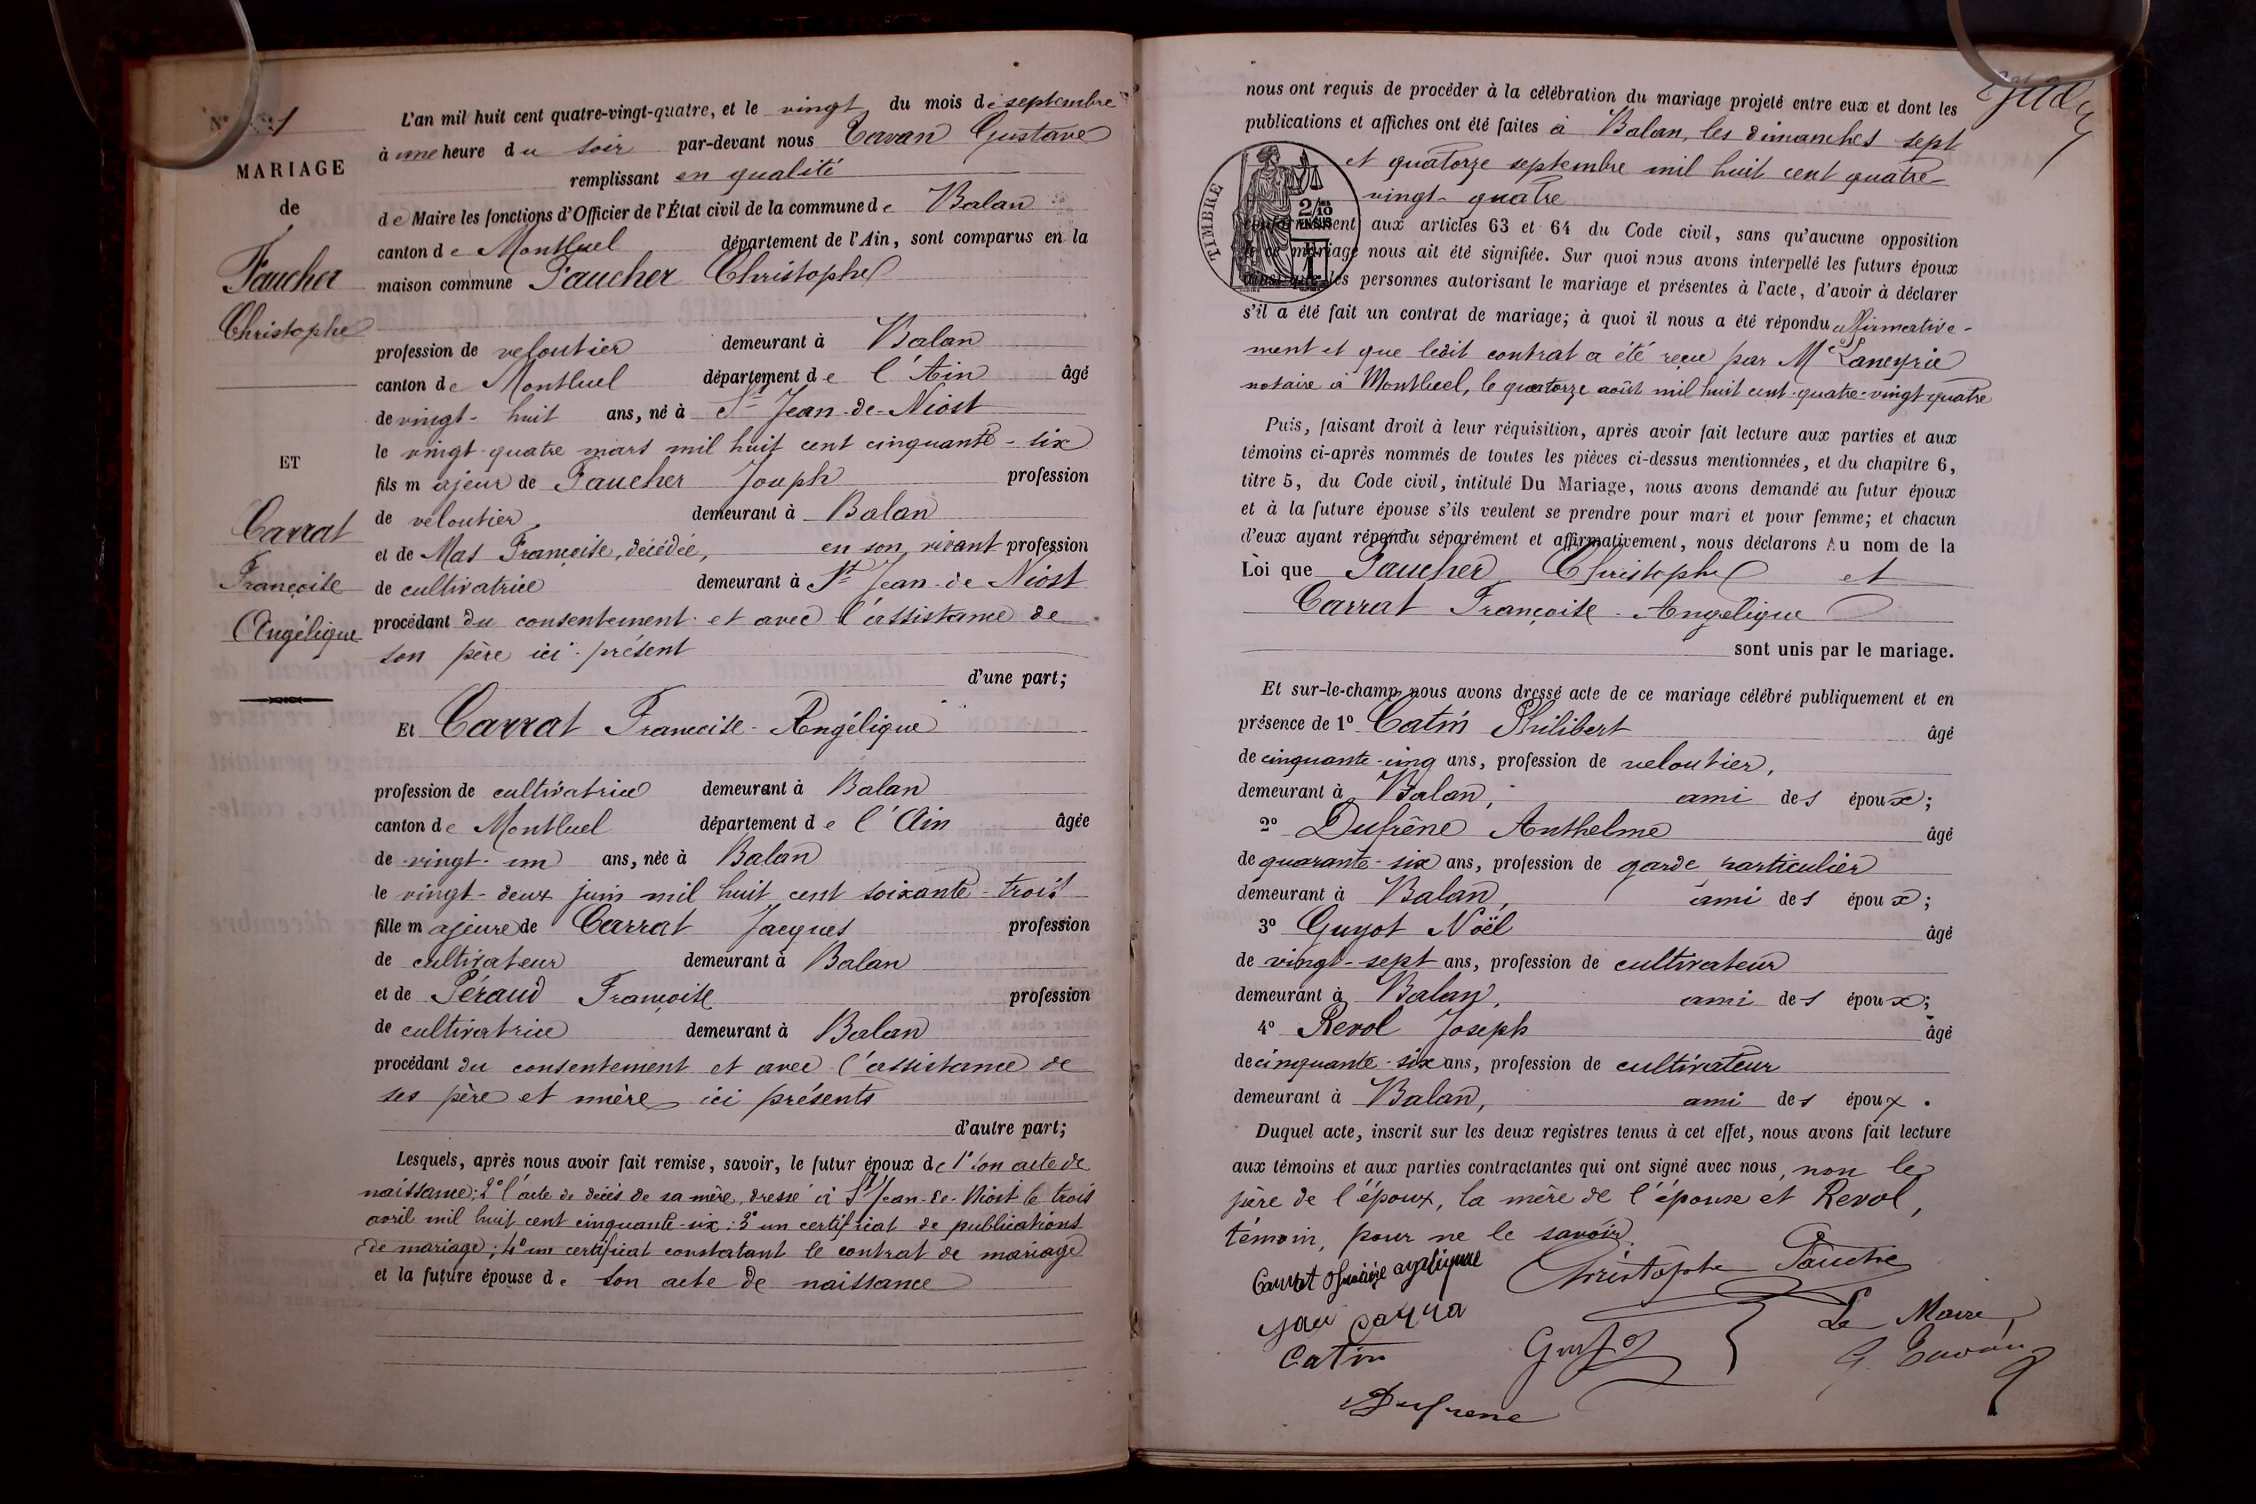 N° 1
MARIAGE
de
Faucher
Christophe
ET
Carrat
Françoise
Angélique
L'an mil huit cent quatre-vingt-quatre, et le vingt du mois de septembre
à une heure du soir par-devant nous Cavan Gustave
remplissant en qualité
de Maire les fonctions d'Officier de l'État civil de la commune de Balan
canton de Montluel département de l'Ain, sont comparus en la
maison commune Faucher Christophe
profession de veloutier demeurant à Balan
canton de Montluel département de l'Ain âgé
de vingt-huit ans, né à St Jean-de-Niost
le vingt-quatre mars mil huit cent cinquante-six
fils majeur de Faucher Joseph profession
de veloutier demeurant à Balan
et de Mas Françoise, décédée, en son vivant profession
de cultivatrice demeurant à St Jean-de Niost
procédant du consentement et avec l'assistance de
son père ici présent
d'une part;
Et Carrat Françoise-Angélique
profession de cultivatrice demeurant à Balan
canton de Montluel département de l'Ain âgée
de vingt-un ans, née à Balan
le vingt-deux juin mil huit cent soixante-trois
fille majeure de Carrat Jacques profession
de cultivateur demeurant à Balan
et de Péraud Françoise profession
de cultivatrice demeurant à Balan
procédant du consentement et avec l'assistance de
ses père et mère ici présents
d'autre part;
Lesquels, après nous avoir fait remise, savoir, le futur époux de 1° son acte de
naissance; 2° l'acte de décès de sa mère, dressé à St Jean-de-Niost le trois
avril mil huit cent cinquante-six; 3° un certificat de publications
de mariage; 4° un certificat constatant le contrat de mariage
et la future épouse de son acte de naissance
nous ont requis de procéder à la célébration du mariage projeté entre eux et dont les
publications et affiches ont été faites à Balan, les dimanches sept
et quatorze septembre mil huit cent quatre-
vingt-quatre
TIMBRE
2/10 EN SUS
conformément aux articles 63 et 64 du Code civil, sans qu'aucune opposition
à ce mariage nous ait été signifiée. Sur quoi nous avons interpellé les futurs époux
ainsi que les personnes autorisant le mariage et présentes à l'acte, d'avoir à déclarer
s'il a été fait un contrat de mariage; à quoi il nous a été répondu affirmative-
ment et que ledit contrat a été reçu par Me Laneyrie
notaire à Montluel, le quatorze août mil huit cent-quatre-vingt-quatre
Puis, faisant droit à leur réquisition, après avoir fait lecture aux parties et aux
témoins ci-après nommés de toutes les pièces ci-dessus mentionnées, et du chapitre 6,
titre 5, du Code civil, intitulé Du Mariage, nous avons demandé au futur époux
et à la future épouse s'ils veulent se prendre pour mari et pour femme; et chacun
d'eux ayant répondu séparément et affirmativement, nous déclarons Au nom de la
Loi que Faucher Christophe et
Carrat Françoise-Angélique
sont unis par le mariage.
Et sur-le-champ nous avons dressé acte de ce mariage célébré publiquement et en
présence de 1° Catin Philibert âgé
de cinquante-cinq ans, profession de veloutier,
demeurant à Balan, ami des époux;
2° Dufrêne Anthelme âgé
de quarante-six ans, profession de garde particulier
demeurant à Balan, ami des époux;
3° Guyot Noël âgé
de vingt-sept ans, profession de cultivateur
demeurant à Balan, ami des époux;
4° Revol Joseph âgé
de cinquante-six ans, profession de cultivateur
demeurant à Balan, ami des époux.
Duquel acte, inscrit sur les deux registres tenus à cet effet, nous avons fait lecture
aux témoins et aux parties contractantes qui ont signé avec nous, non le
père de l'époux, la mère de l'épouse et Revol,
témoin, pour ne le savoir.
Christophe Fauche
Le Maire,
Catin
Dufrene